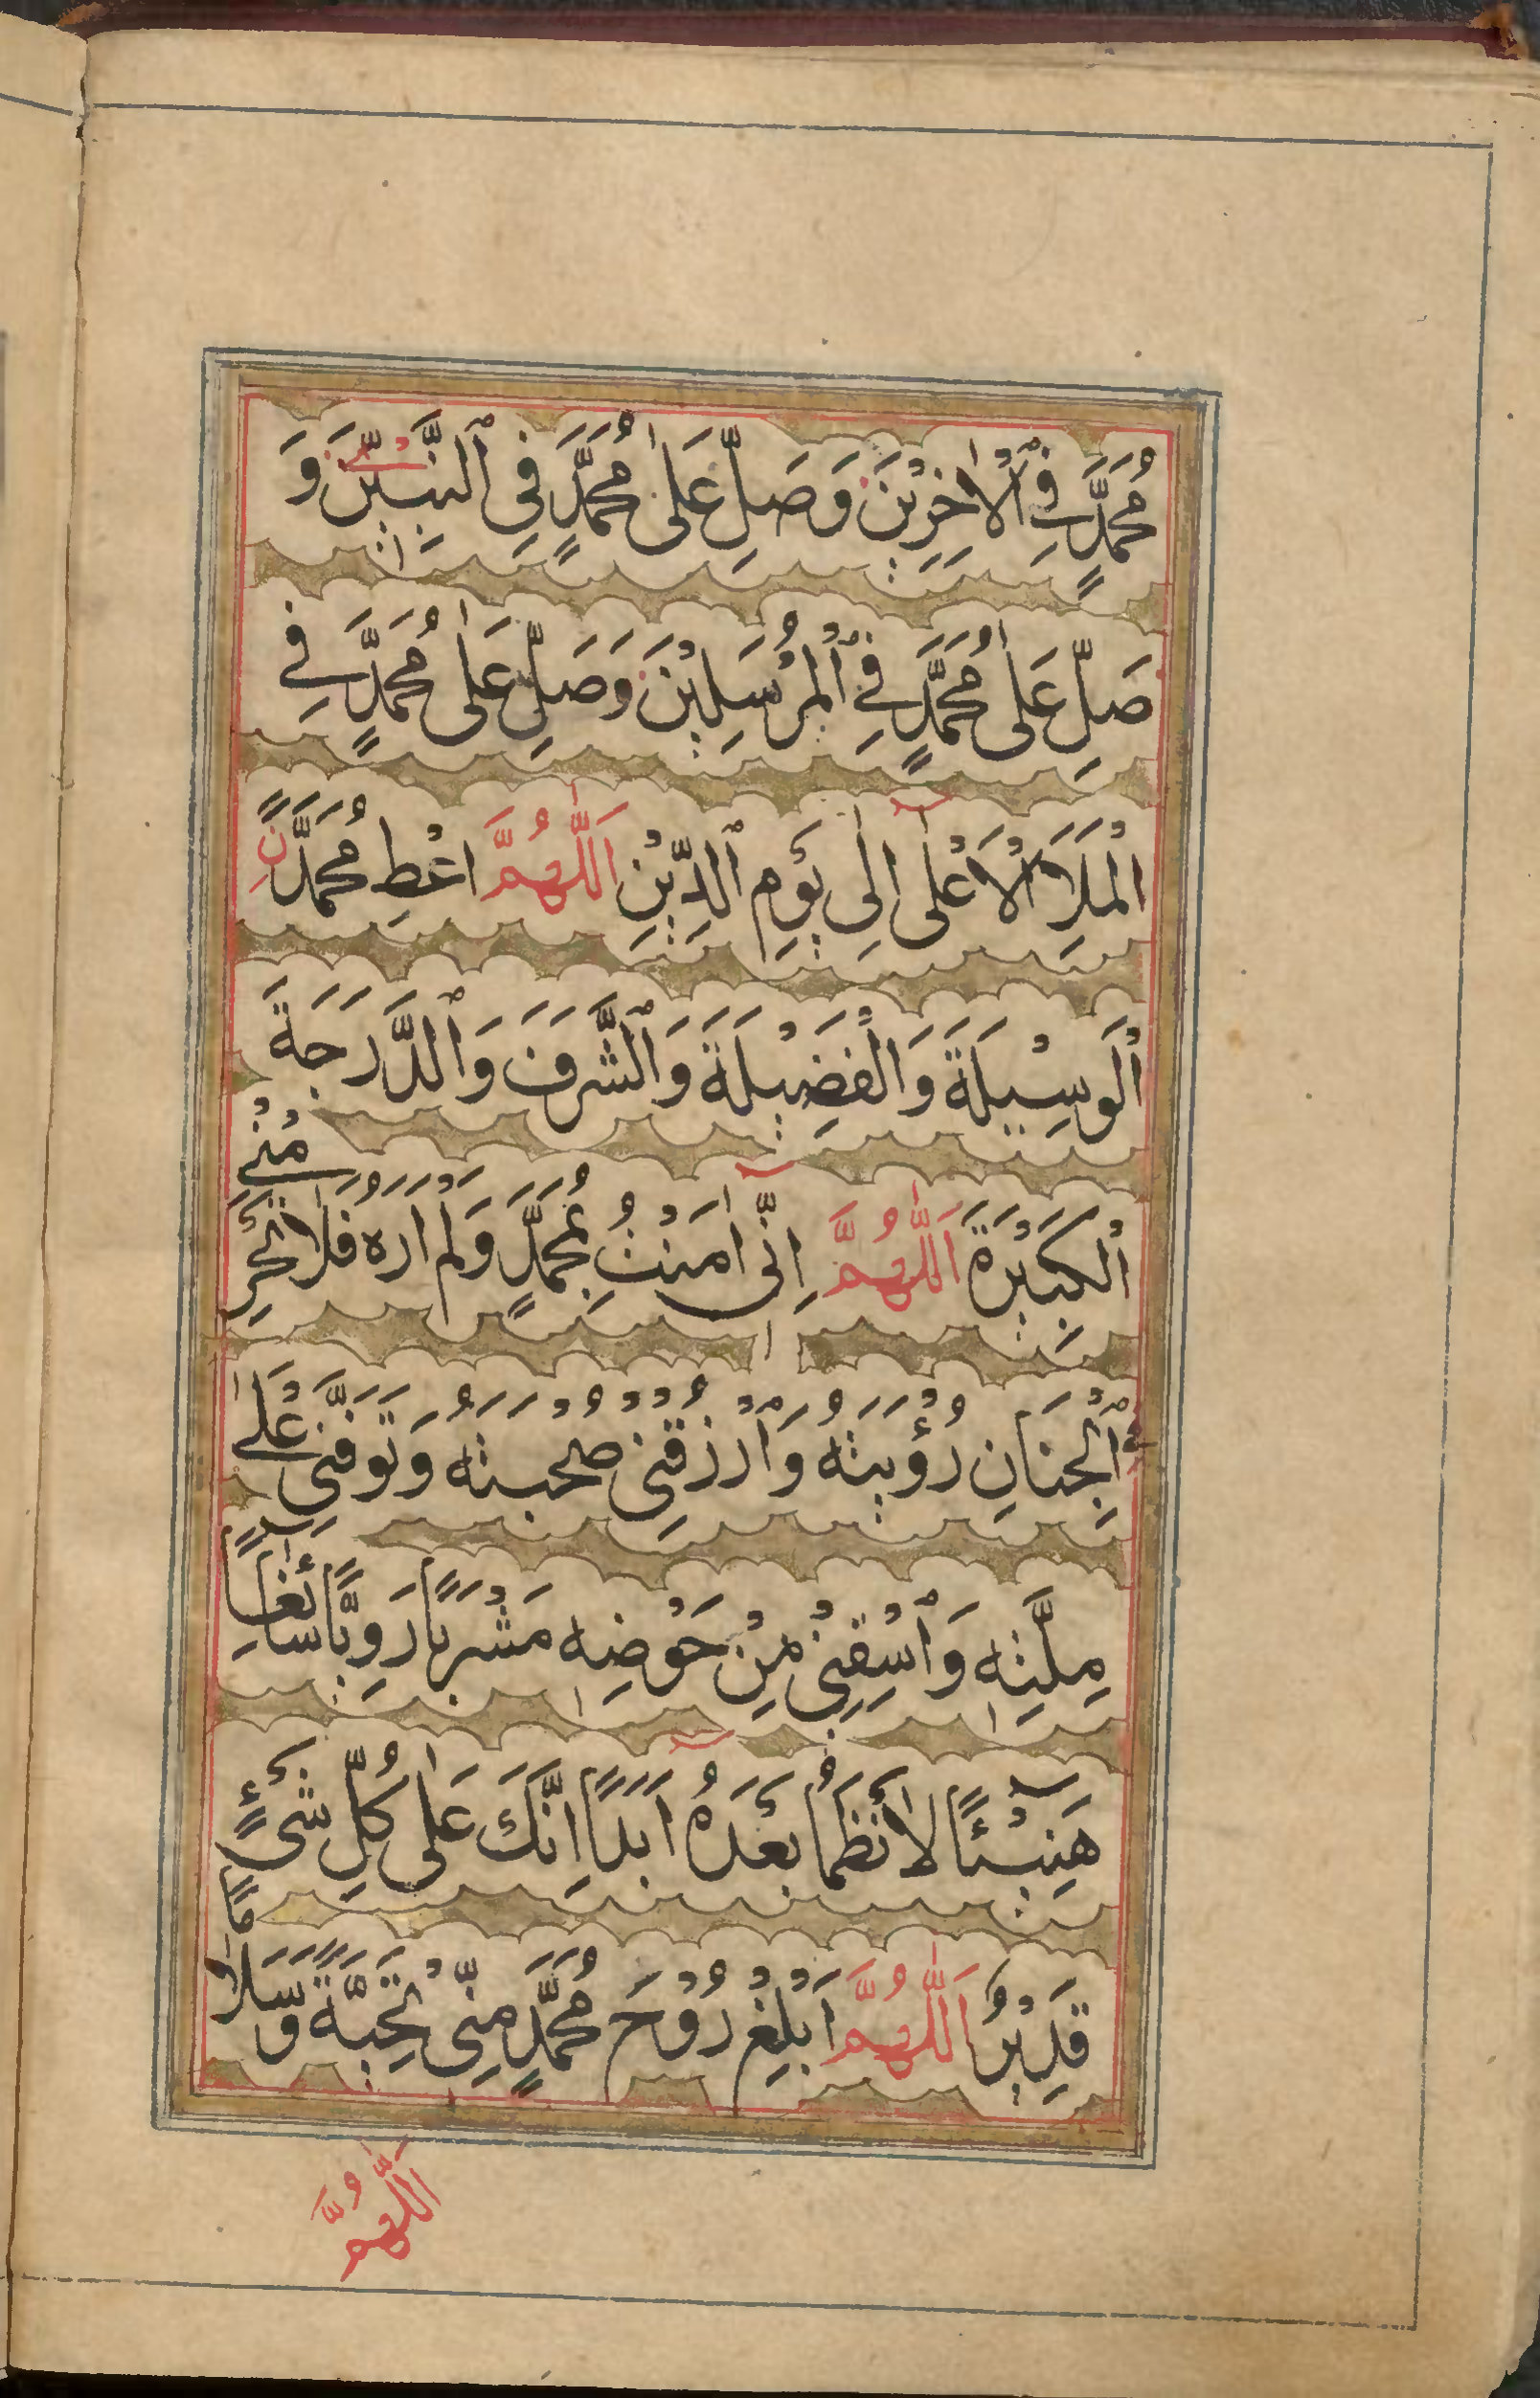 مُحَمَّدٍ فِي ٱلْاٰخِرِيْنَ وَصَلِّ عَلٰى مُحَمَّدٍ فِي ٱلنَّبِيّٖنَ وَ
صَلِّ عَلٰى مُحَمَّدٍ فِي ٱلْمُرْسَلِيْنَ وَصَلِّ عَلٰى مُحَمَّدٍ فِي
الْمَلَاِ ٱلْاَعْلٰى اِلٰى يَوْمِ ٱلدِّيْنِ اَللّٰهُمَّ اعْطِ مُحَمَّدًانِ
ٱلْوَسِيْلَةَ وَالْفَضِيْلَةَ وَٱلشَّرَفَ وَٱلدَّرَجَةَ
ٱلْكَبِيْرَةَ اَللّٰهُمَّ اِنِّىٓ اٰمَنْتُ بِمُحَمَّدٍ وَلَمْ اَرَهُ فَلَا تَحْرِمْنِيْ
فِي ٱلْجِنَانِ رُؤْيَتَهُ وَٱرْزُقْنِيْ صُحْبَتَهُ وَتَوَفَّنِيْ عَلٰى
مِلَّتِهٖ وَٱسْقِنِيْ مِنْ حَوْضِهٖ مَشْرَبًا رَوِيًّا سَآئِغًا
هَنِيْٓئًا لَا نَظْمَأُ بَعْدَهُٓ اَبَدًا اِنَّكَ عَلٰى كُلِّ شَيْءٍ
قَدِيْرٌ اَللّٰهُمَّ اَبْلِغْ رُوْحَ مُحَمَّدٍ مِنِّيْ تَحِيَّةً وَّسَلَامًا
اَللّٰهُمَّ